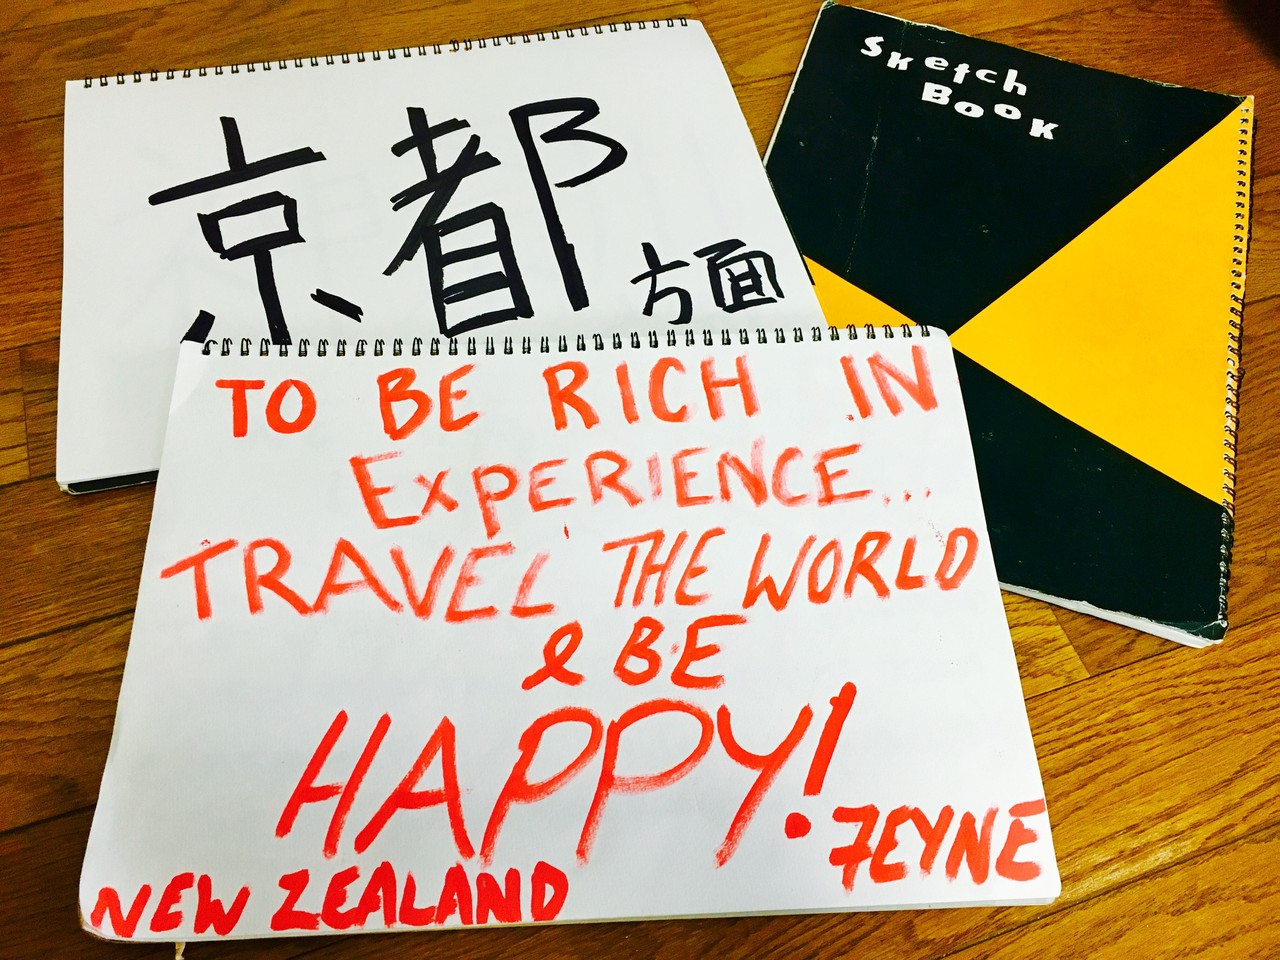 京都方面
Sketch
Book
TO BE RICH IN
EXPERIENCE...
TRAVEL THE WORLD
& BE
HAPPY!
NEW ZEALAND